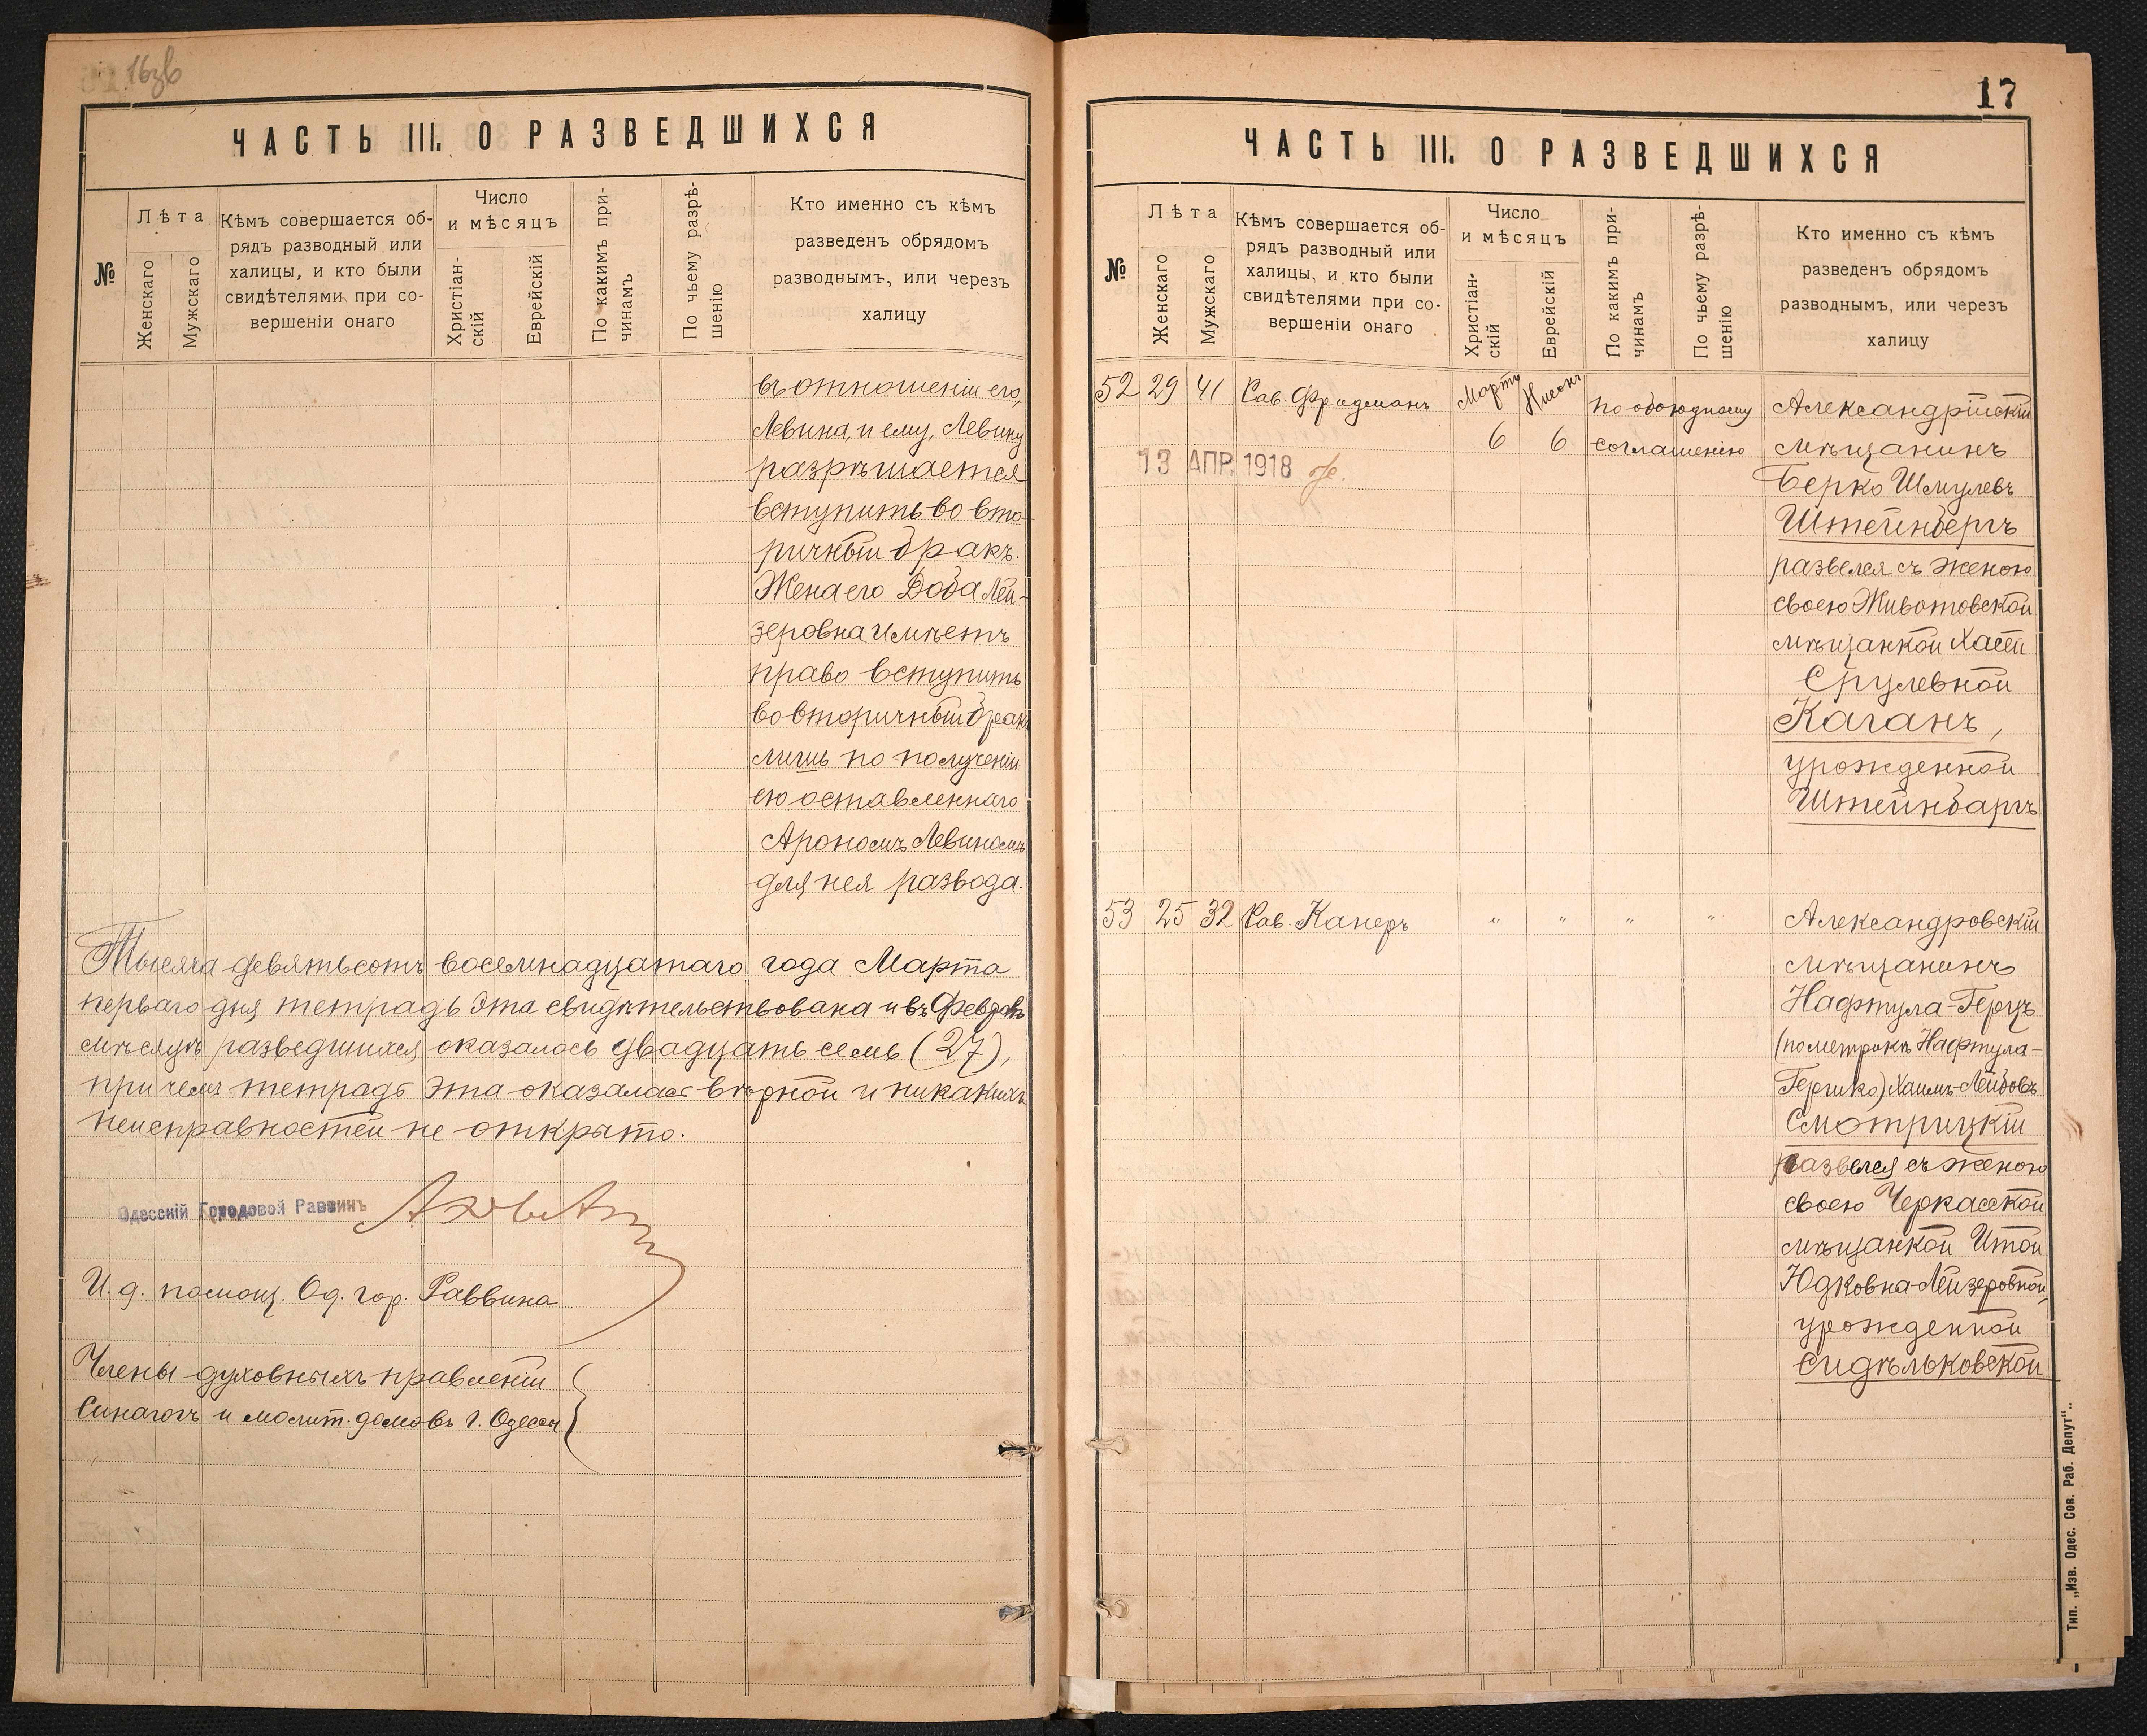 16зв
ЧАСТЬ III. О РАЗВЕДШИХСЯ
№
Лѣта
Женскаго
Мужскаго
Кѣмъ совершается об-
рядъ разводный или
халицы, и кто были
свидѣтелями при со-
вершеніи онаго
Число
и мѣсяцъ
Христіан-
скій
Еврейскій
По какимъ при-
чинамъ
По чьему разрѣ-
шенію
Кто именно съ кѣмъ
разведенъ обрядомъ
разводнымъ, или черезъ
халицу
въ отношеніи его,
Левина, и ему, Левину
разрѣшается
вступить во вто-
ричный бракъ.
Жена его Доба Лей-
зеровна имѣетъ
право вступить
во вторичный бракъ
лишь по полученіи
ею оставленнаго
Арономъ Левиномъ
для нея развода.
Тысяча девятьсотъ восемнадцатаго года Марта
перваго дня тетрадь эта свидѣтельствована и въ Февралѣ
мѣсяцѣ разведшихся оказалось двадцать семь (27),
при чемъ тетрадь эта оказалась вѣрной и никакихъ
неисправностей не открыто.
Одесскій Городовой Раввинъ
И. д. помощ. Од. гор. Раввина
Члены духовныхъ правленій
Синагогъ и молит. домовъ г. Одессы
17
ЧАСТЬ III. О РАЗВЕДШИХСЯ
№
Лѣта
Женскаго
Мужскаго
Кѣмъ совершается об-
рядъ разводный или
халицы, и кто были
свидѣтелями при со-
вершеніи онаго
Число
и мѣсяцъ
Христіан-
скій
Еврейскій
По какимъ при-
чинамъ
По чьему разрѣ-
шенію
Кто именно съ кѣмъ
разведенъ обрядомъ
разводнымъ, или черезъ
халицу
52 29 41 Рав. Фридманъ Мартъ Нисонъ по обоюдному Александрійскій
6 6 соглашенію мѣщанинъ
13 АПР. 1918
Берко Шмулевъ
Штейнбергъ
развелся съ женою
своею Животовской
мѣщанкой Хасей
Срулевной
Каганъ,
урожденной
Штейнбаргъ
53 25 32 Рав. Канеръ " " " " Александровскій
мѣщанинъ
Нафтула-Герцъ
(по метрикѣ Нафтула-
Гершко) Хаимъ-Лейбовъ
Смотрицкій
развелся съ женою
своею Черкасской
мѣщанкой Итой
Юдковна-Лейзеровной,
урожденной
Сидѣльковской
Тип. „Изв. Одес. Сов. Раб. Депут“..